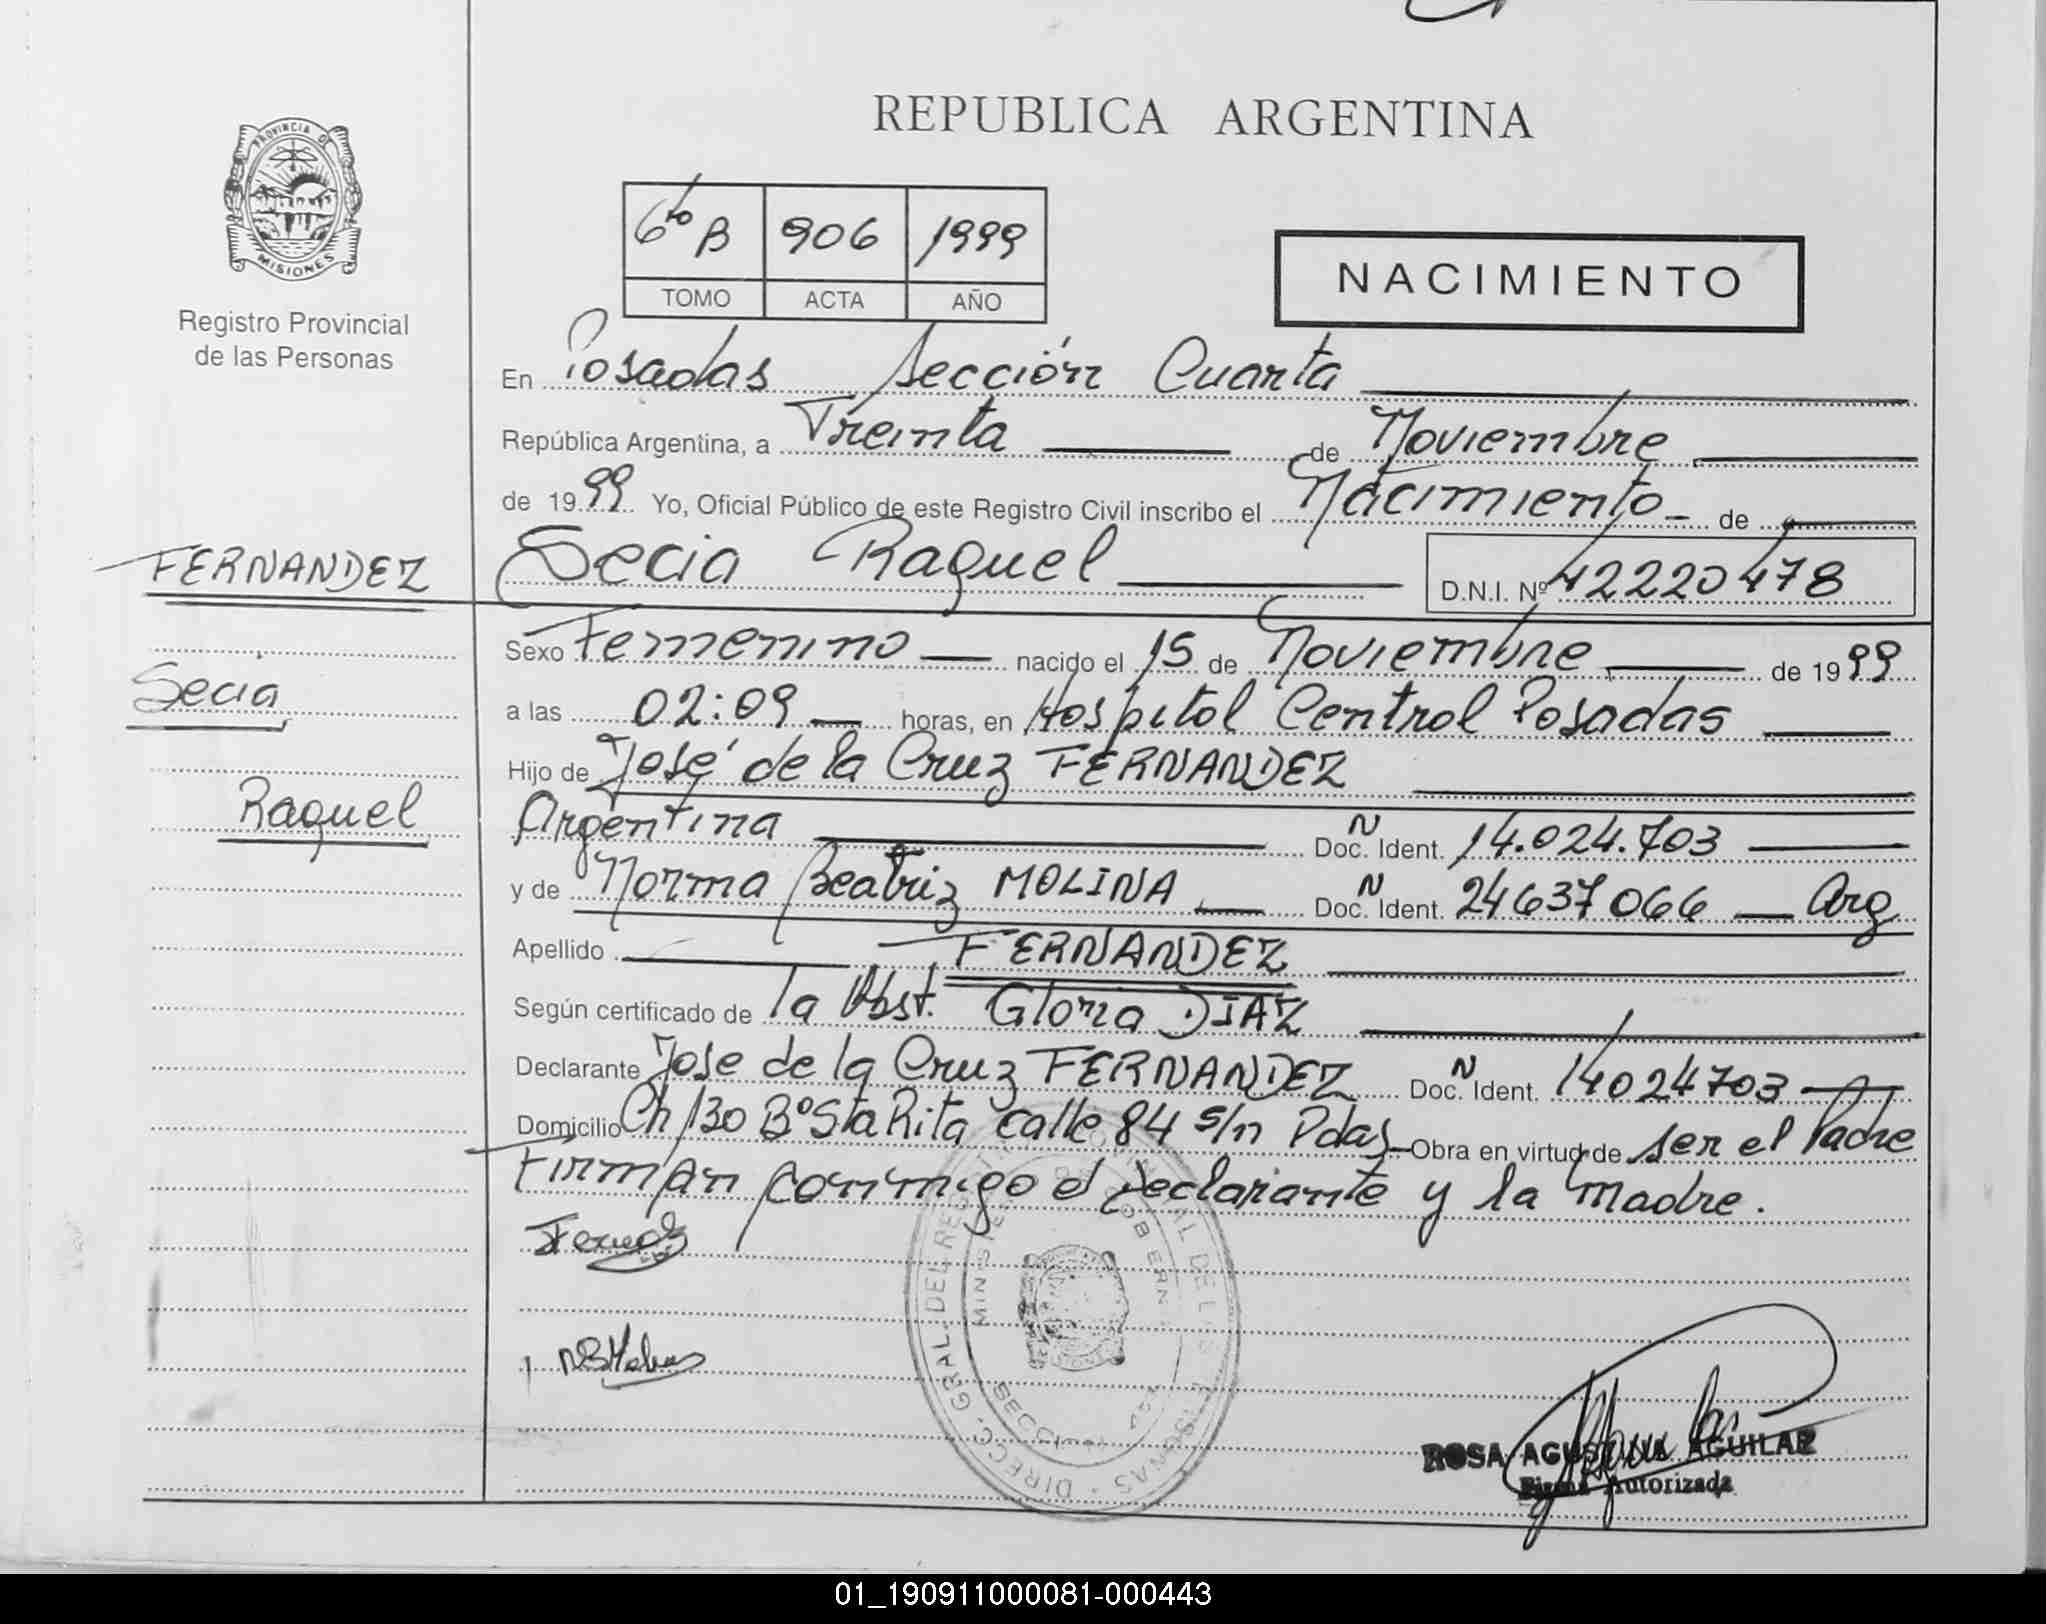 REPUBLICA ARGENTINA
PROVINCIA DE
MISIONES
Registro Provincial
de las Personas
6to B 906 1999
TOMO ACTA AÑO
NACIMIENTO
En Posadas Sección Cuarta
República Argentina, a Treinta de Noviembre
de 1999 Yo, Oficial Público de este Registro Civil inscribo el Nacimiento de
FERNANDEZ
Secia
Raquel
Secia Raquel D.N.I. Nº 42220478
Sexo Femenino nacido el 15 de Noviembre de 1999
a las 02:09 horas, en Hospital Central Posadas
Hijo de José de la Cruz FERNANDEZ
Argentina Doc. N Ident. 14.024.703
y de Norma Beatriz MOLINA Doc. N Ident. 24637066 Arg
Apellido FERNANDEZ
Según certificado de la Obst. Gloria DIAZ
Declarante Jose de la Cruz FERNANDEZ Doc. N Ident. 14024703
Domicilio Ch 130 Bº Sta Rita calle 84 s/n Pdas Obra en virtud de ser el Padre
Firman conmigo el declarante y la madre.
NB Molina
ROSA AGUSTINA AGUILAR
Firma Autorizada
01_190911000081-000443